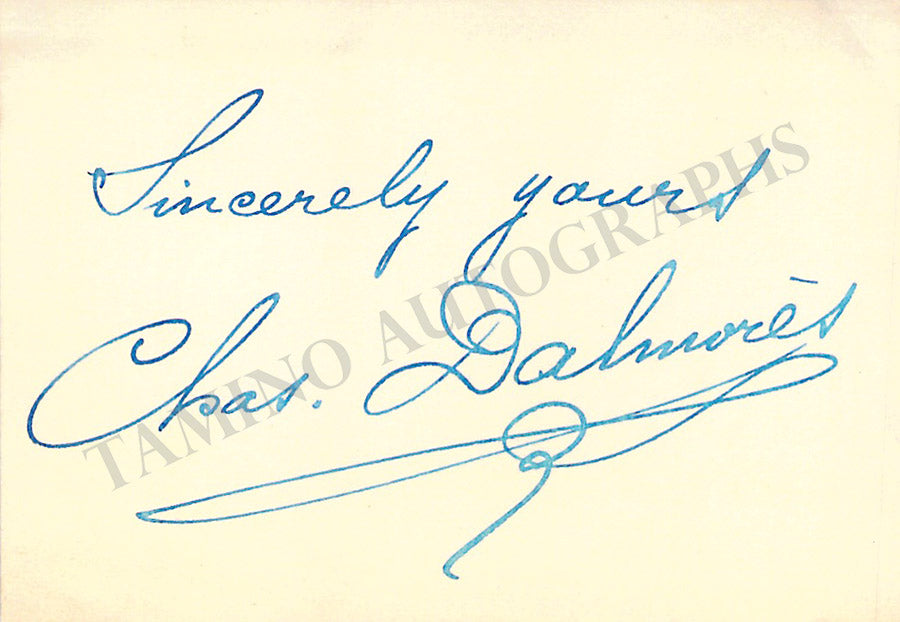 Sincerely yours
Chas. Dalmorès
TAMINO AUTOGRAPHS